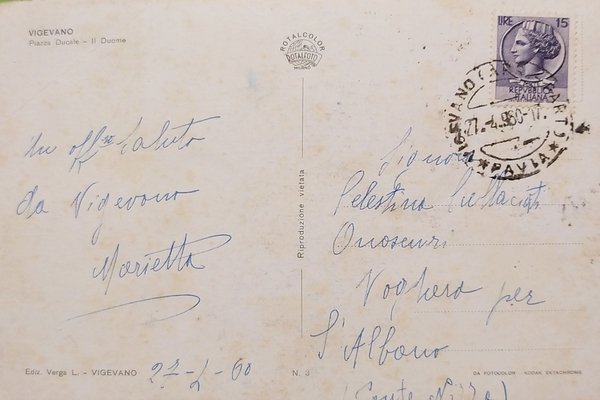 VIGEVANO
Piazza Ducale - Il Duomo
ROTALCOLOR
ROTALFOTO
MILANO
LIRE 15
REPUBBLICA
ITALIANA
27.4.960-17
PAVIA
Un aff. saluto
da Vigevano
Marietta
Riproduzione vietata
Signora
Celestina
Voghera per
S. Albano
(Ponte Nizza)
Ediz. Verga L. - VIGEVANO
27-4-60
N. 3
DA FOTOCOLOR - KODAK EKTACHROME